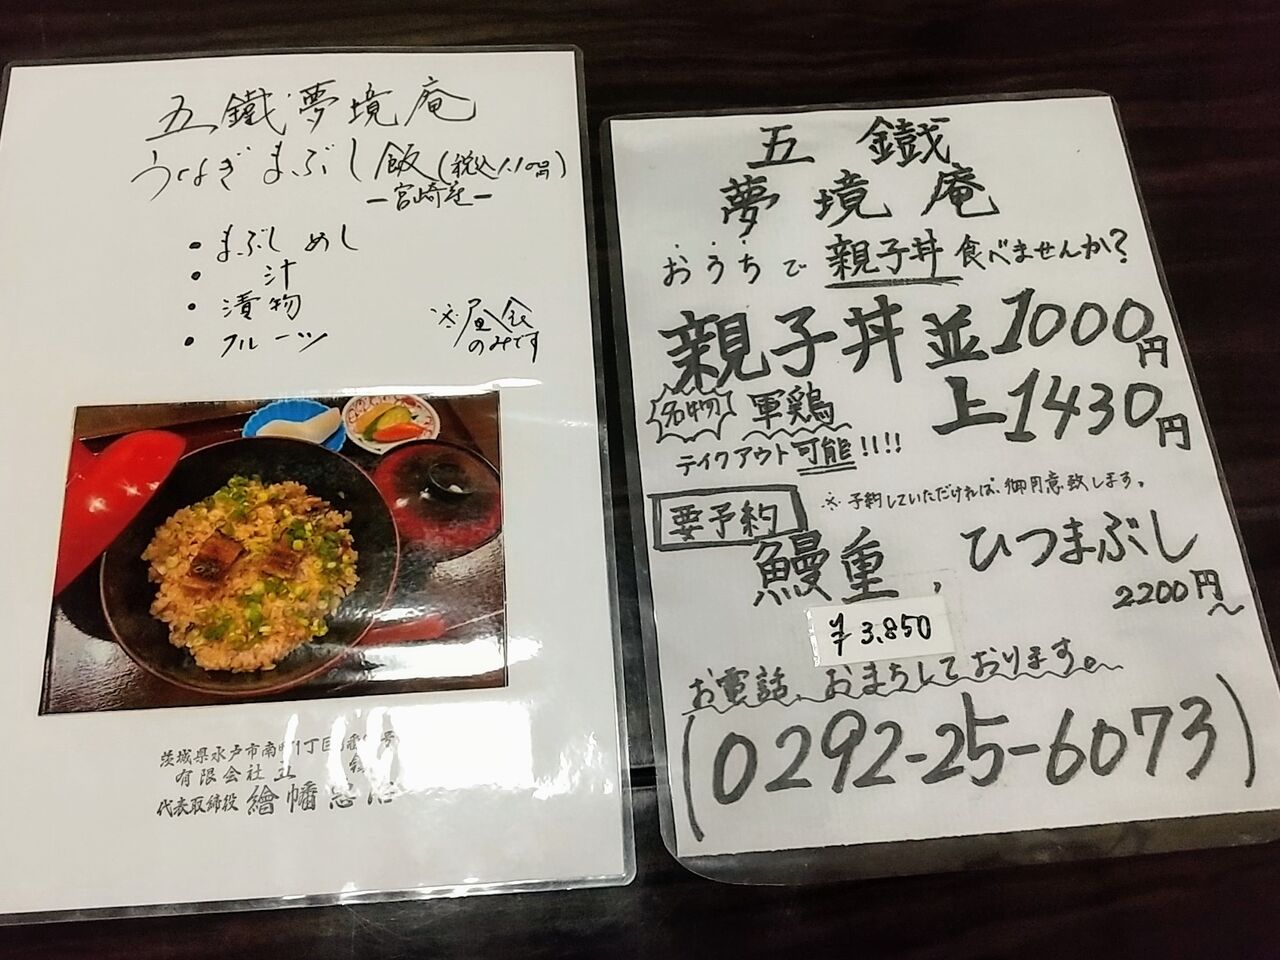 五鐵夢境庵
うなぎまぶし飯(税込1.100円)
ー宮崎産ー
• まぶしめし
• 汁
• 漬物
• フルーツ
※昼食
のみです
茨城県水戸市南町1丁目
有限会社五
代表取締役 繪幡
五鐵
夢境庵
おうちで親子丼食べませんか?
親子丼 並1000円
上1430円
名物 軍鶏
テイクアウト可能!!!!
要予約 ※予約していただければ、御用意致します。
鰻重、ひつまぶし
¥3.850
2200円~
お電話、おまちしております。
(0292-25-6073)